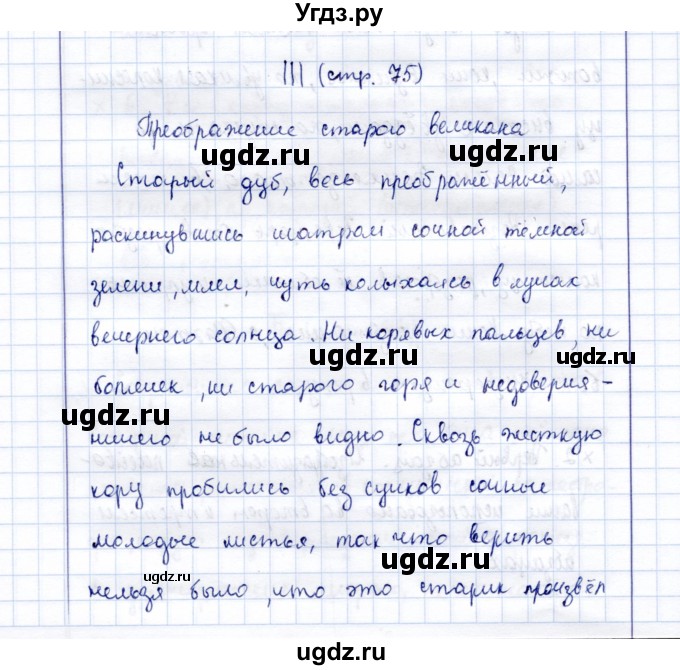 Угдз.ру
III (стр. 75)
Преображение старого великана
ugdz.ru ugdz.ru
Старый дуб, весь преображённый,
раскинувшись шатром сочной тёмной
ugdz.ru
зелени, млел, чуть колыхаясь в лучах
вечернего солнца. Ни корявых пальцев, ни
ugdz.ru ugdz.ru
болячек, ни старого горя и недоверия -
ugdz.ru
ничего не было видно. Сквозь жесткую
ugdz.ru
кору пробились без сучков сочные
ugdz.ru
молодые листья, так что верить
ugdz.ru ugdz.ru
нельзя было, что это старик произвёл
ugdz.ru ugdz.ru
ugdz.ru